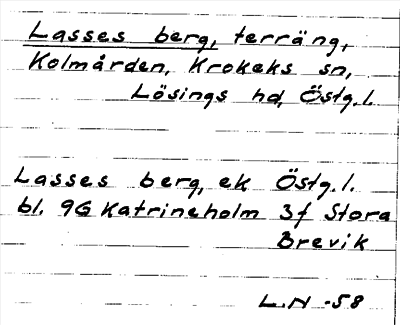 Lasses berg, terräng,
Kolmården, Krokeks sn,
Lösings hd, Östg.l.
Lasses berg, ek Östg.l.
bl. 9G Katrineholm 3f Stora
Brevik
L.N -58